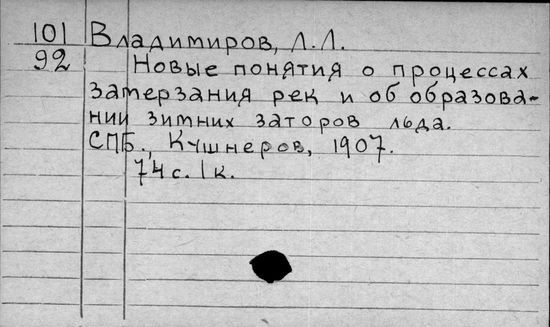 101 Владимиров, Л.Л.
92 Новые понятия о процессах
замерзания рек и об образова-
нии зимних заторов льда.
СПБ., Кушнеров, 1907.
74 с. 1 к.